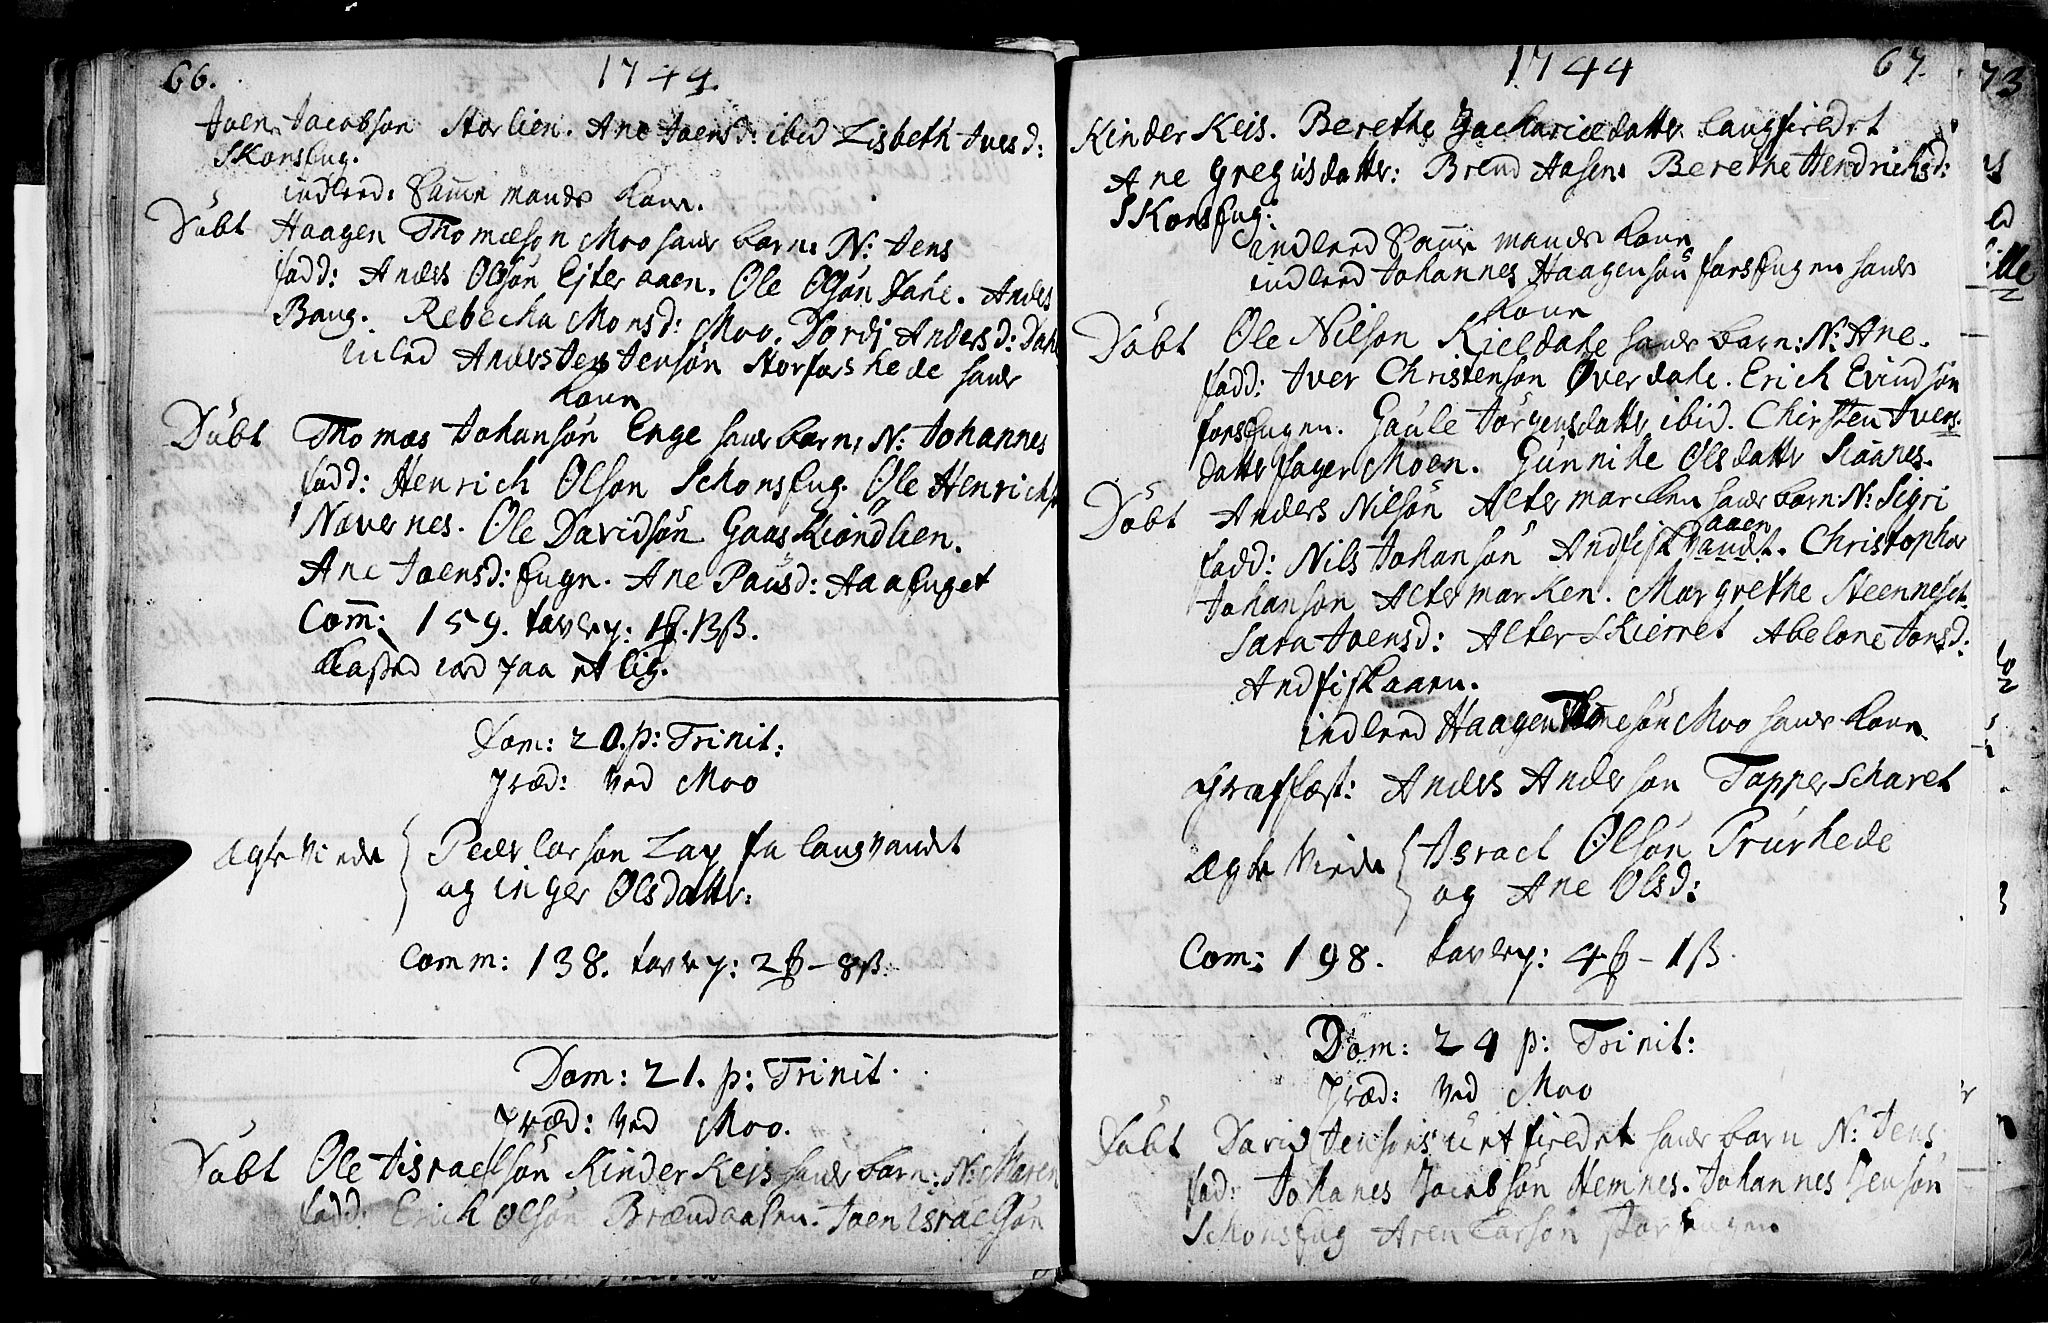 66. 1744.
Joen Jacobson Storlien. Ane Joensd: ibid Lisbeth Ivesd:
Skonseng.
indled: Samme mands kone.
Døbt Haagen Thomæsøn Moo hans barn. N: Jens
fadd: Anders Olsøn Ejteraaen. Ole Olsøn Dahe. Anders
Baug. Rebecha Monsd: Moo. Dordj Andersd: Dahe
inled Anders Jensøn Storforshede hans
kone
Døbt Thomas Johansøn Enge hans barn, N: Johannes
fadd: Henrich Olsøn Schonseng. Ole Henrichs
Nævernes. Ole Davidsøn Gaaskiøndlien.
Ane Joensd: Engn. Ane Pausd: Aaenget
Com̅: 159. tavlep: 1 13ß.
kasted iord paa et lig.
Dom: 20. p: Trinit:
Præd: ved Moo
Ægte Viede Peder Larsøn Lap fra Langvandet
og inger Olsdatter:
Comm: 138. tavlep: 2 - 8ß.
Dom: 21. p: Trinit.
Præd: ved Moo.
Døbt Ole Jisraelsøn Kinderkeis hans barn: N: Maren
fadd: Erich Olsøn Brændaasen. Joen Israelsøn
1744 67. 73
Kinderkeis. Berethe Zachariædatter Langfiredt
Ane Gregusdatter: Brend Aasen. Berethe Hendrichsd:
Skonseng:
indleed Samme mands kone
indleed Johannes Haagensøn forsengen hans
kone
Døbt Ole Nilsøn Kieldahe hans barn: N: Ane.
fadd: Iver Christensøn Øverdahe. Erich Evindsøn
forsengen. Gaule Jørgensdatter ibid. Chirsten Ivers
datter fagerMoen. Gunnihe Olsdatter Skånes.
Døbt Anders Nilsøn Altermarken hans barn: N: Sigri
aaen
fadd: Nils Johansøn Andfiskvandt. Christopher
Johansøn Altermarken. Margrethe Steenneset.
Sara Joensd: Alterskierret Abelone Jonsd:
Andfiskaaen.
indleed Haagen Thomesøn Moo hans kone
Graffæst: Anders Andersøn Tapperscharet
Ægte Viede Jsrael Olsøn Prurhede
og Ane Olsd:
Com: 198. tavlep: 4 - 1ß.
Dom: 24 p: Trinit:
Præd: ved Moo
Døbt David Jensøns uretfiredet hans barn N: Jens
fad: Johanes Jacobsøn Hemnes. Johannes Jensøn
Schonseng Aren Larsøn Storfengen